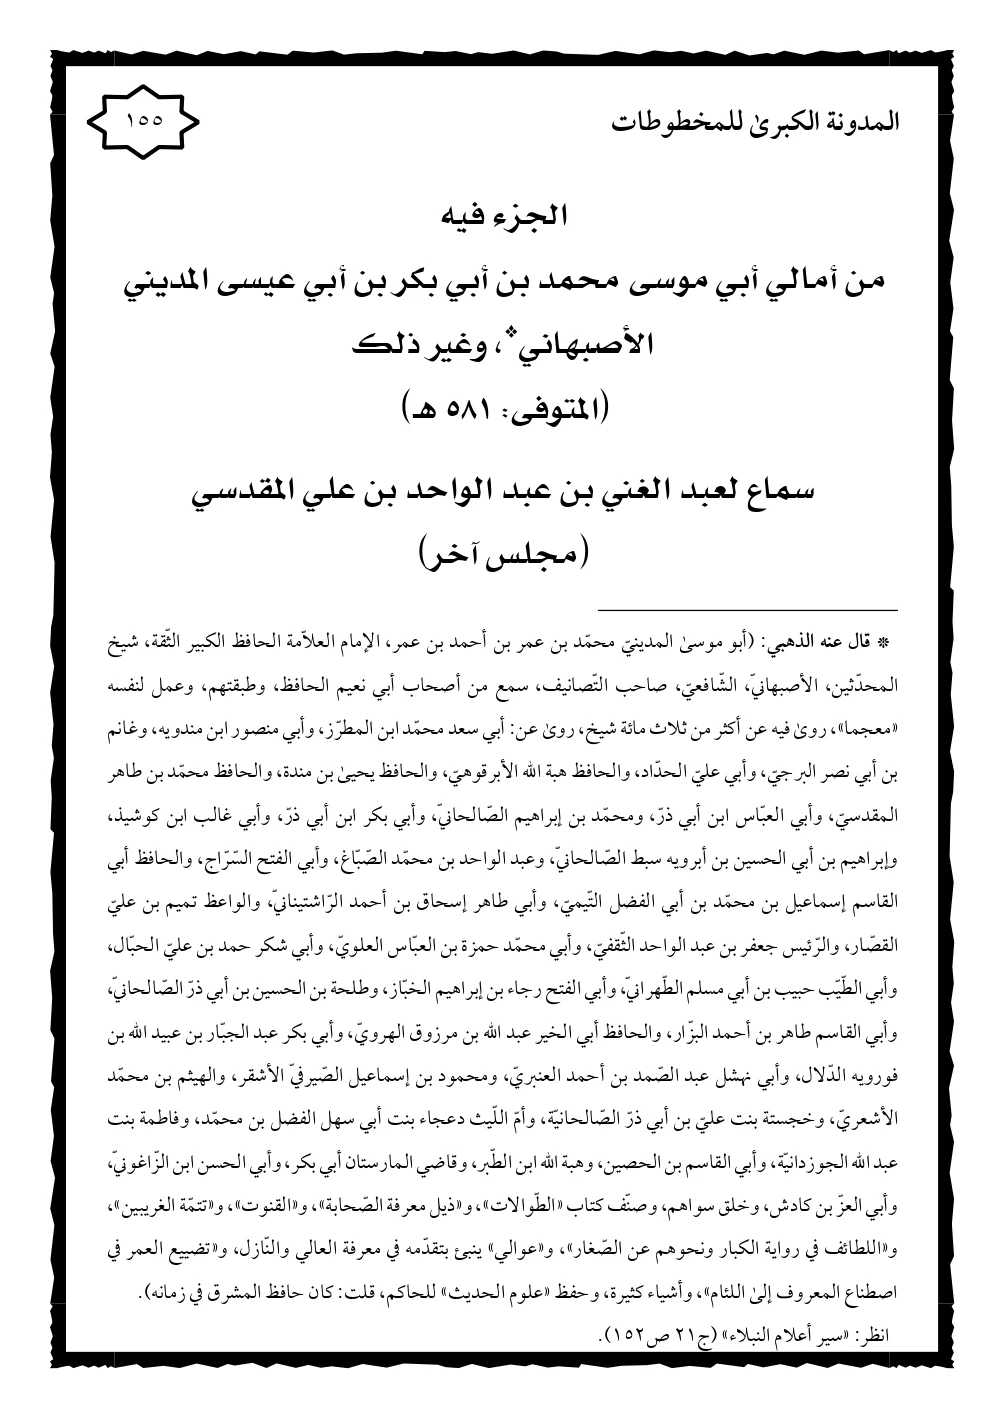 المدونة الكبرىٰ للمخطوطات
١٥٥
الجزء فيه
من أمالي أبي موسى محمد بن أبي بكر بن أبي عيسى المديني
الأصبهاني❖، وغير ذلك
(المتوفى: ٥٨١ هـ)
سماع لعبد الغني بن عبد الواحد بن علي المقدسي
(مجلس آخر)
❊ قال عنه الذهبي: (أبو موسىٰ المدينيّ محمّد بن عمر بن أحمد بن عمر، الإمام العلاّمة الحافظ الكبير الثّقة، شيخ
المحدّثين، الأصبهانيّ، الشّافعيّ، صاحب التّصانيف، سمع من أصحاب أبي نعيم الحافظ، وطبقتهم، وعمل لنفسه
«معجما»، روىٰ فيه عن أكثر من ثلاث مائة شيخ، روىٰ عن: أبي سعد محمّد ابن المطرّز، وأبي منصور ابن مندويه، وغانم
بن أبي نصر البرجيّ، وأبي عليّ الحدّاد، والحافظ هبة الله الأبرقوهيّ، والحافظ يحيىٰ بن مندة، والحافظ محمّد بن طاهر
المقدسيّ، وأبي العبّاس ابن أبي ذرّ، ومحمّد بن إبراهيم الصّالحانيّ، وأبي بكر ابن أبي ذرّ، وأبي غالب ابن كوشيذ،
وإبراهيم بن أبي الحسين بن أبرويه سبط الصّالحانيّ، وعبد الواحد بن محمّد الصّبّاغ، وأبي الفتح السّرّاج، والحافظ أبي
القاسم إسماعيل بن محمّد بن أبي الفضل التّيميّ، وأبي طاهر إسحاق بن أحمد الرّاشتينانيّ، والواعظ تميم بن عليّ
القصّار، والرّئيس جعفر بن عبد الواحد الثّقفيّ، وأبي محمّد حمزة بن العبّاس العلويّ، وأبي شكر حمد بن عليّ الحبّال،
وأبي الطّيّب حبيب بن أبي مسلم الطّهرانيّ، وأبي الفتح رجاء بن إبراهيم الخبّاز، وطلحة بن الحسين بن أبي ذرّ الصّالحانيّ،
وأبي القاسم طاهر بن أحمد البزّار، والحافظ أبي الخير عبد الله بن مرزوق الهرويّ، وأبي بكر عبد الجبّار بن عبيد الله بن
فورويه الدّلال، وأبي نهشل عبد الصّمد بن أحمد العنبريّ، ومحمود بن إسماعيل الصّيرفيّ الأشقر، والهيثم بن محمّد
الأشعريّ، وخجستة بنت عليّ بن أبي ذرّ الصّالحانيّة، وأمّ اللّيث دعجاء بنت أبي سهل الفضل بن محمّد، وفاطمة بنت
عبد الله الجوزدانيّة، وأبي القاسم بن الحصين، وهبة الله ابن الطّبر، وقاضي المارستان أبي بكر، وأبي الحسن ابن الزّاغونيّ،
وأبي العزّ بن كادش، وخلق سواهم، وصنّف كتاب «الطّوالات»، و«ذيل معرفة الصّحابة»، و«القنوت»، و«تتمّة الغريبين»،
و«اللطائف في رواية الكبار ونحوهم عن الصّغار»، و«عوالي» ينبئ بتقدّمه في معرفة العالي والنّازل، و«تضييع العمر في
اصطناع المعروف إلىٰ اللئام»، وأشياء كثيرة، وحفظ «علوم الحديث» للحاكم، قلت: كان حافظ المشرق في زمانه).
انظر: «سير أعلام النبلاء» (ج٢١ ص١٥٢).